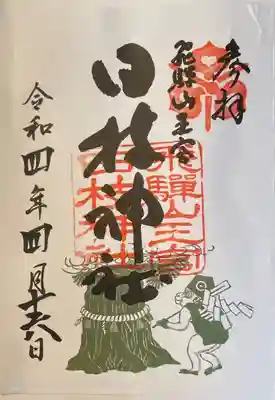 参拝
飛騨山王宮
日枝神社
飛騨山王宮
日枝神社
令和四年四月十六日